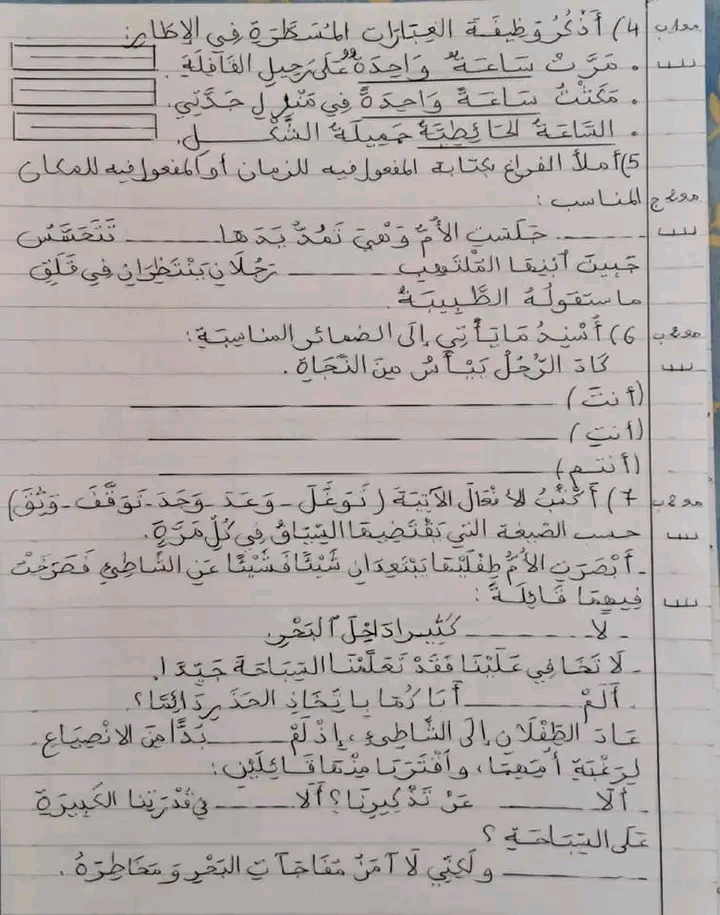 معاب 4) أَذْكُرُ وَظِيفَةَ العِبَارَاتِ المُسَطَّرَةِ فِي الإِطَارِ:
. مَرَّتْ سَاعَةٌ وَاحِدَةٌ عَلَى رَحِيلِ القَافِلَةِ.
. مَكَثْتُ سَاعَةً وَاحِدَةً فِي مَنْزِلِ جَدَّتِي.
. السَّاعَةُ الحَائِطِيَّةُ جَمِيلَةُ الشَّكْلِ.
5) أملأ الفراغ بكتابة المفعول فيه للزمان أو المفعول فيه للمكان
المناسب:
جَلَسَتِ الأُمُّ وَهْيَ تَمُدُّ يَدَهَا تَتَحَسَّسُ
جَبِينَ آبْنِهَا المُلْتَهِبِ رَجُلَانِ يَنْتَظِرَانِ فِي قَلَقٍ
مَا سَتَقُولُهُ الطَّبِيبَةُ.
6) أُسْنِدُ مَا يَأْتِي إِلَى الضمائر المناسبَةِ:
كَادَ الرَّجُلُ يَيْأَسُ مِنَ النَّجَاةِ.
(أنتَ)
(أنتِ)
(أنتم)
7) أَكْتُبُ الأَفْعَالَ الآتِيَةَ (تَوَغَّلَ - وَعَدَ - وَجَدَ - تَوَقَّفَ - وَثِقَ)
حسب الصيغة التي يَقْتَضِيهَا السِّيَاقُ فِي كُلِّ مَرَّةٍ.
- أَبْصَرَتِ الأُمُّ طِفْلَيْهَا يَبْتَعِدَانِ شَيْئًا فَشَيْئًا عَنِ الشَّاطِئِ فَصَرَخَتْ
فِيهِمَا قَائِلَةً:
- لا كَثِيرا دَاخِلَ آلبَحْرِ
- لَا تَخَافِي عَلَيْنَا فَقَدْ تَعَلَّمْنَا السِّبَاحَةَ جَيِّدًا.
- أَلَمْ أَبَاكُمَا بِاتِّخَاذِ الحَذَرِ دَائِمًا؟
عَادَ الطِّفْلَانِ إِلَى الشَّاطِئِ، إِذْ لَمْ بُدًّا مِنَ الانْصِيَاعِ
لِرَغْبَةِ أُمِّهِمَا، وَآقْتَرَبَا مِنْهَا قَائِلَيْنِ:
- أَلَا عَنْ تَذْكِيرِنَا؟ أَلَا فِي قُدْرَتِنَا الكَبِيرَةِ
عَلَى السِّبَاحَةِ؟
- وَلَكِنِّي لَا آمَنُ مُفَاجَآتِ البَحْرِ وَمَخَاطِرَهُ.